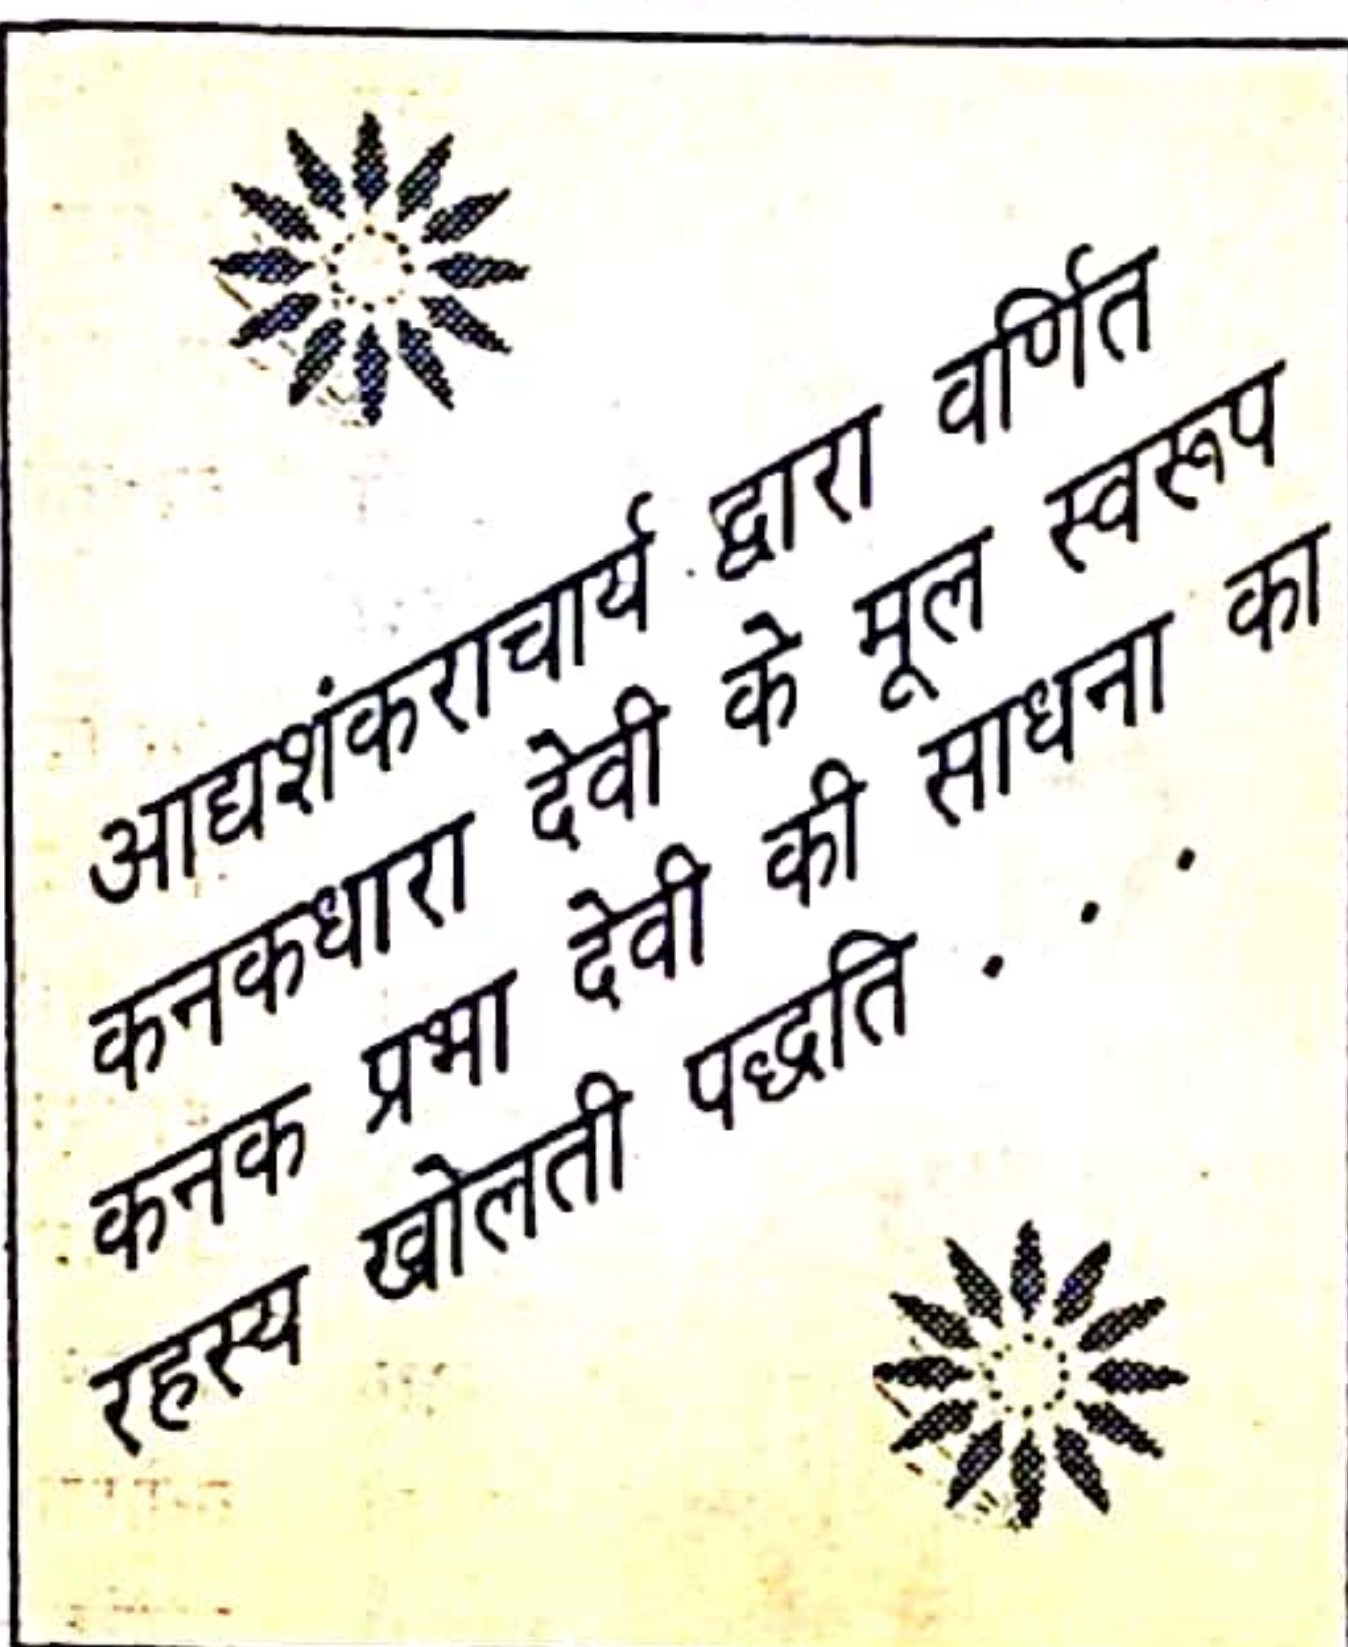 आद्यशंकराचार्य द्वारा वर्णित
कनकधारा देवी के मूल स्वरूप
कनक प्रभा देवी की साधना का
रहस्य खोलती पद्धति . . .